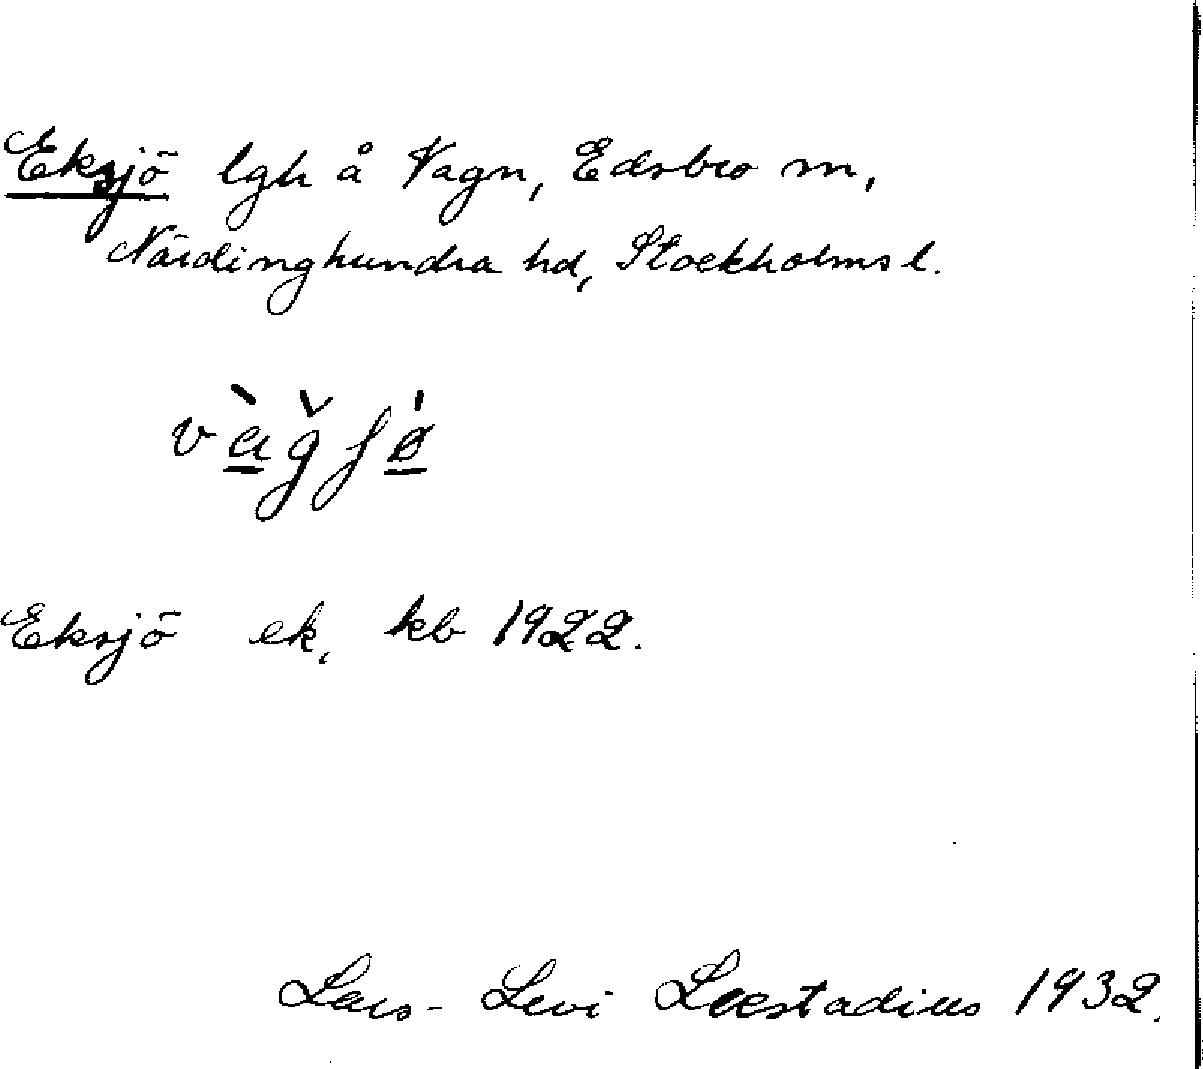 Eksjö lgh å Vagn, Edsbro sn,
Närdinghundra hd, Stockholms l.
Eksjö ek, kb 1922.
Lars-Levi Læstadius 1932.